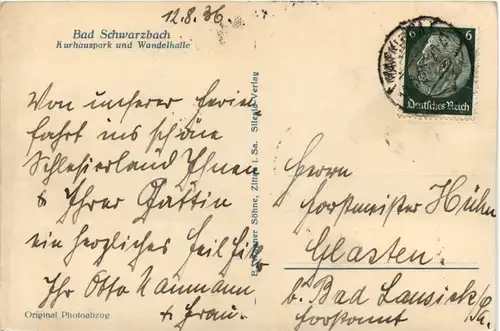 12.8.36
Bad Schwarzbach
Kurhauspark und Wandelhalle
Von unserer Ferien
fahrt ins schöne
Schlesierland Ihnen
& Ihrer Gattin
ein herzliches Heil Hitler
Ihr Otto Naumann
+ Frau.
Original Photoabzug
Söhne, Zittau i. Sa. Silesia-Verlag
6 6
Deutsches Reich
Herrn
Forstmeister Hühn
Glasten.
b. Bad Lausick /
Forstamt Sa.